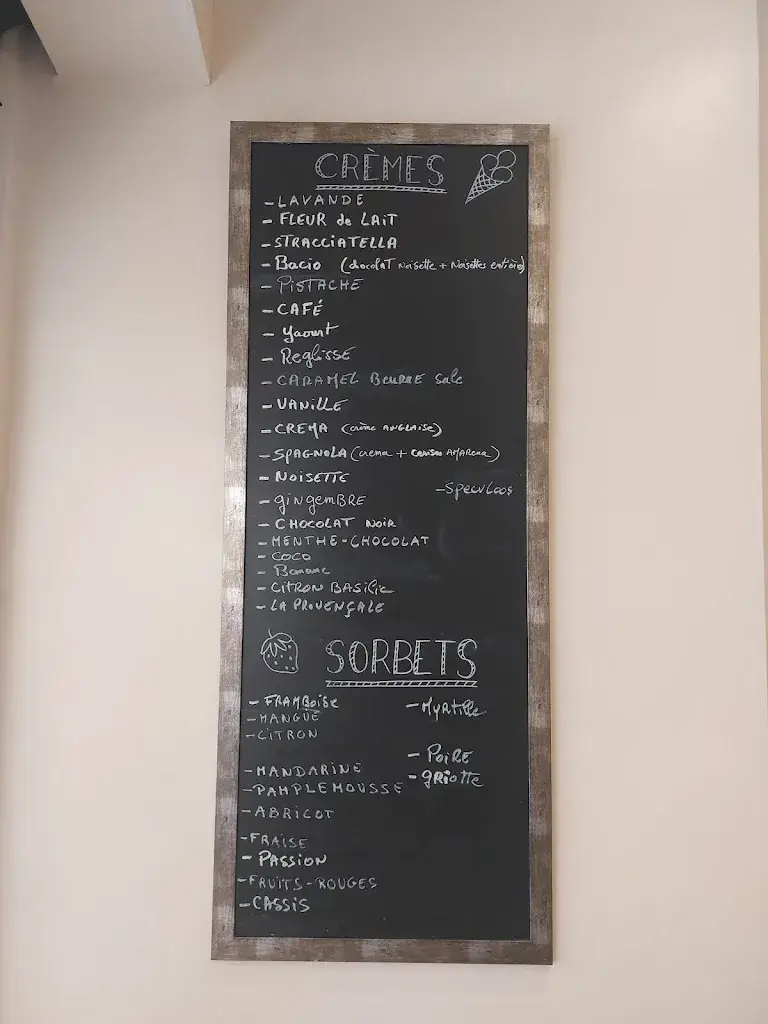 CRÈMES
- LAVANDE
- FLEUR de LAIT
- STRACCIATELLA
- Bacio (chocolat Noisette + Noisettes entière)
- PISTACHE
- CAFÉ
- Yaourt
- ReglisSE
- CARAMEL BEURRE Salé
- VANILLE
- CREMA (crème ANGLAISE)
- SPAGNOLA (crema + cerise AMARENA)
- NOISETTE
- Speculoos
- gingeMBRE
- CHOCOLAT NOIR
- MENTHE-CHOCOLAT
- COCO
- Banane
- CITRON BASilic
- LA PROVENÇALE
SORBETS
- FRAMBOISE
- MANGUE
- CITRON
- MANDARINE
- PAMPLEMOUSSE
- ABRICOT
- FRAISE
- PASSION
- FRUITS-ROUGES
- CASSIS
- Myrtille
- PoiRE
- gRiotte